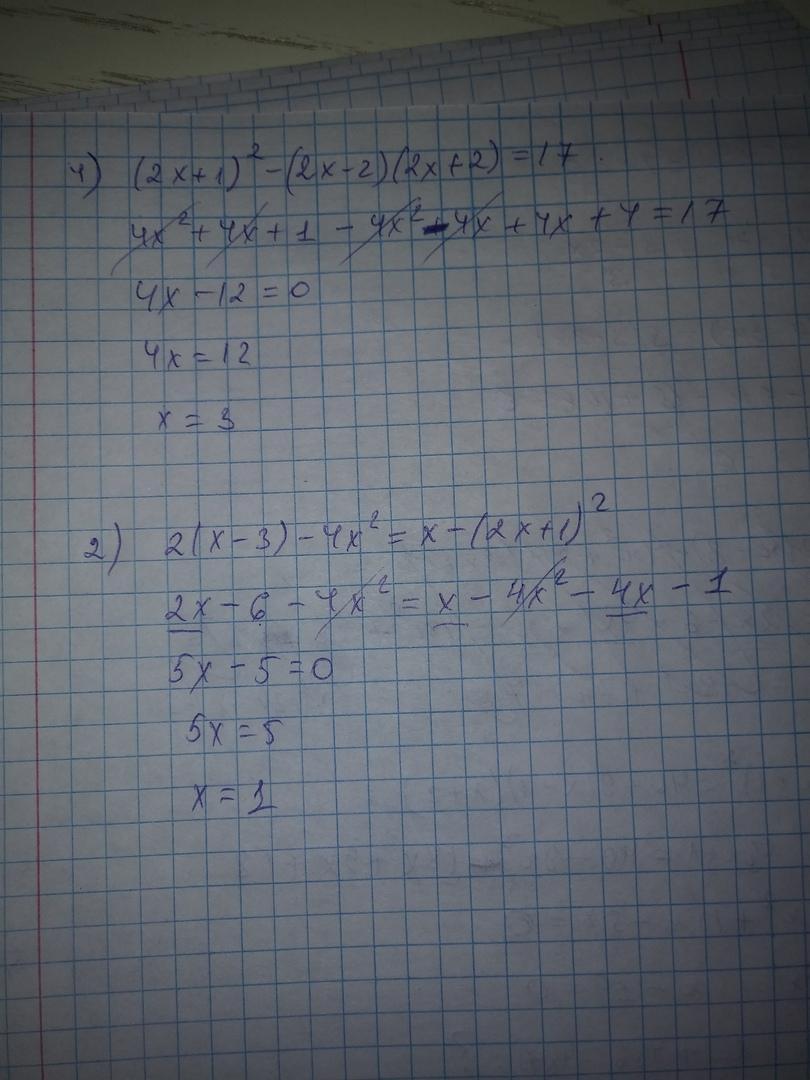 1) (2x+1)² - (2x-2)(2x+2) = 17.
4x² + 4x + 1 - 4x² - 4x + 4x + 4 = 17
4x - 12 = 0
4x = 12
x = 3
2) 2(x-3) - 4x² = x - (2x+1)²
2x - 6 - 4x² = x - 4x² - 4x - 1
5x - 5 = 0
5x = 5
x = 1